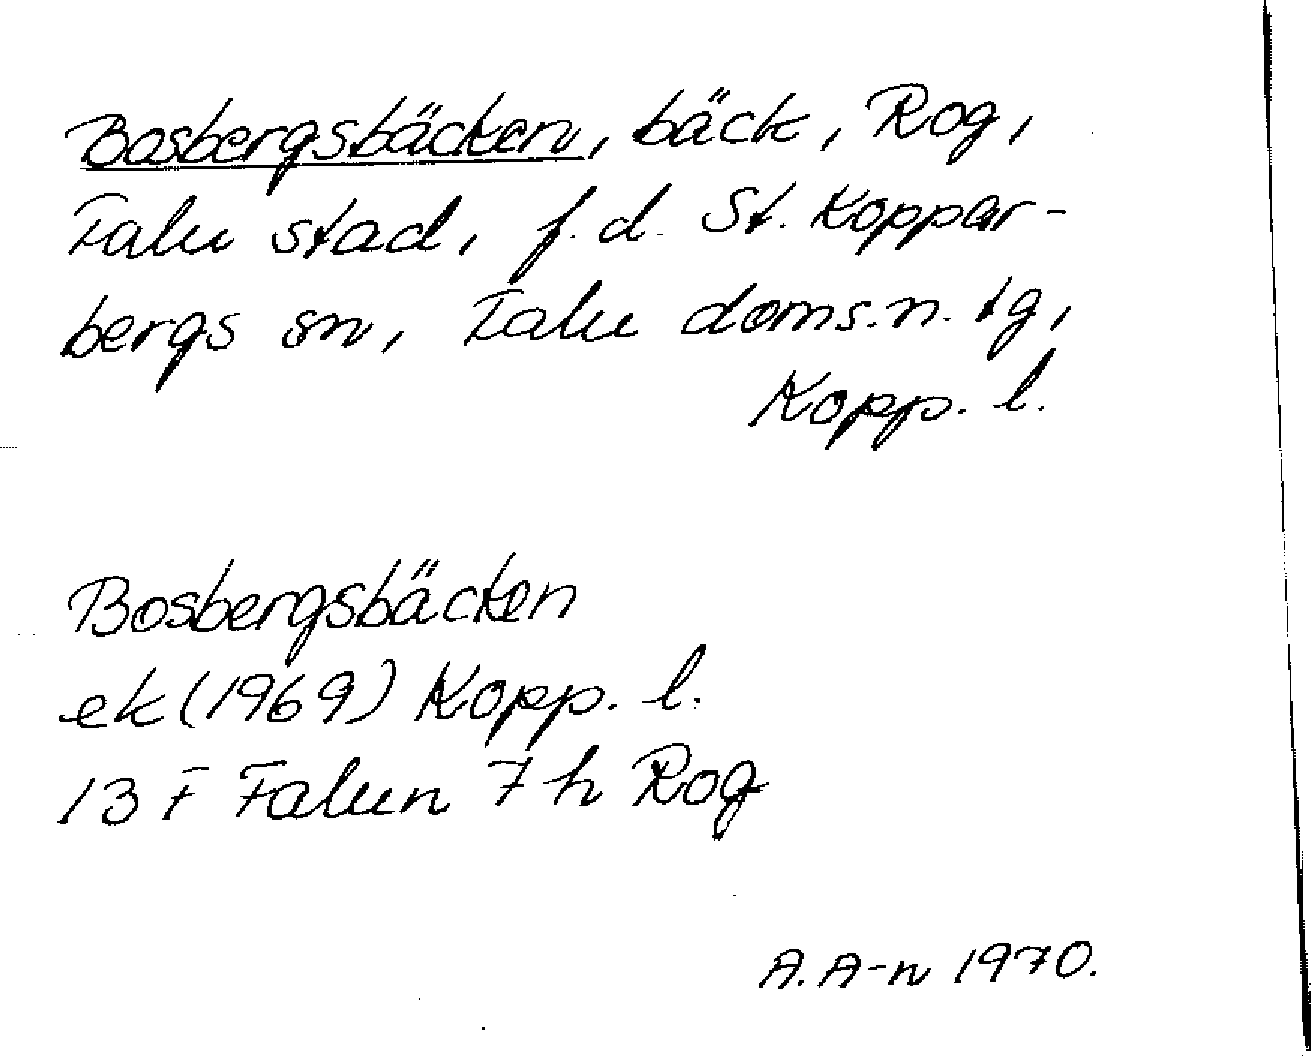 Bosbergsbäcken, bäck, Rog,
Falu stad, f.d. St. Koppar-
bergs sn, Falu doms.n. tg,
Kopp. l.
Bosbergsbäcken
ek (1969) Kopp. l.
13 F Falun 7 h Rog
A. A-n 1970.